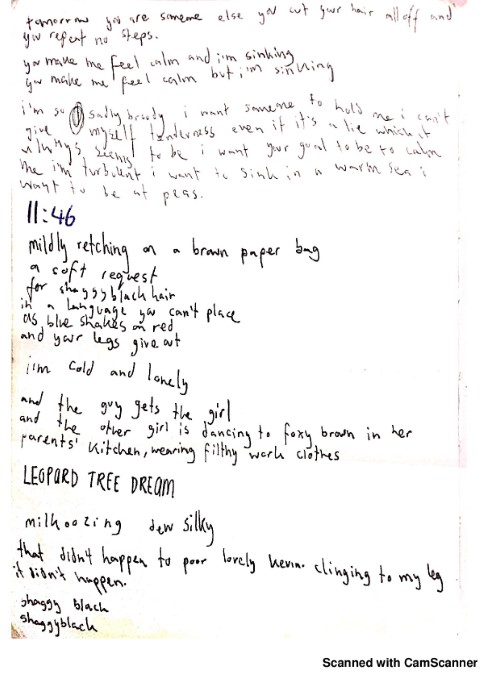 tomorrow you are someone else you cut your hair all off and
you repeat no steps.
you make me feel calm and i'm sinking
you make me feel calm but i'm sinking
i'm so sadly broody i want someone to hold me i can't
give myself tenderness even if it's a lie which it
always seems to be i want your goal to be to calm
me i'm turbulent i want to sink in a warm sea i
want to be at peas.
11:46
mildly retching on a brown paper bag
a soft request
for shaggyblack hair
in a language you can't place
as blue shakes on red
and your legs give out
i'm cold and lonely
and the guy gets the girl
and the other girl is dancing to foxy brown in her
parents' kitchen, wearing filthy work clothes
LEOPARD TREE DREAM
milk oozing dew silky
that didn't happen to poor lovely kevin. clinging to my leg
it didn't happen.
shaggy black
shaggyblack
Scanned with CamScanner